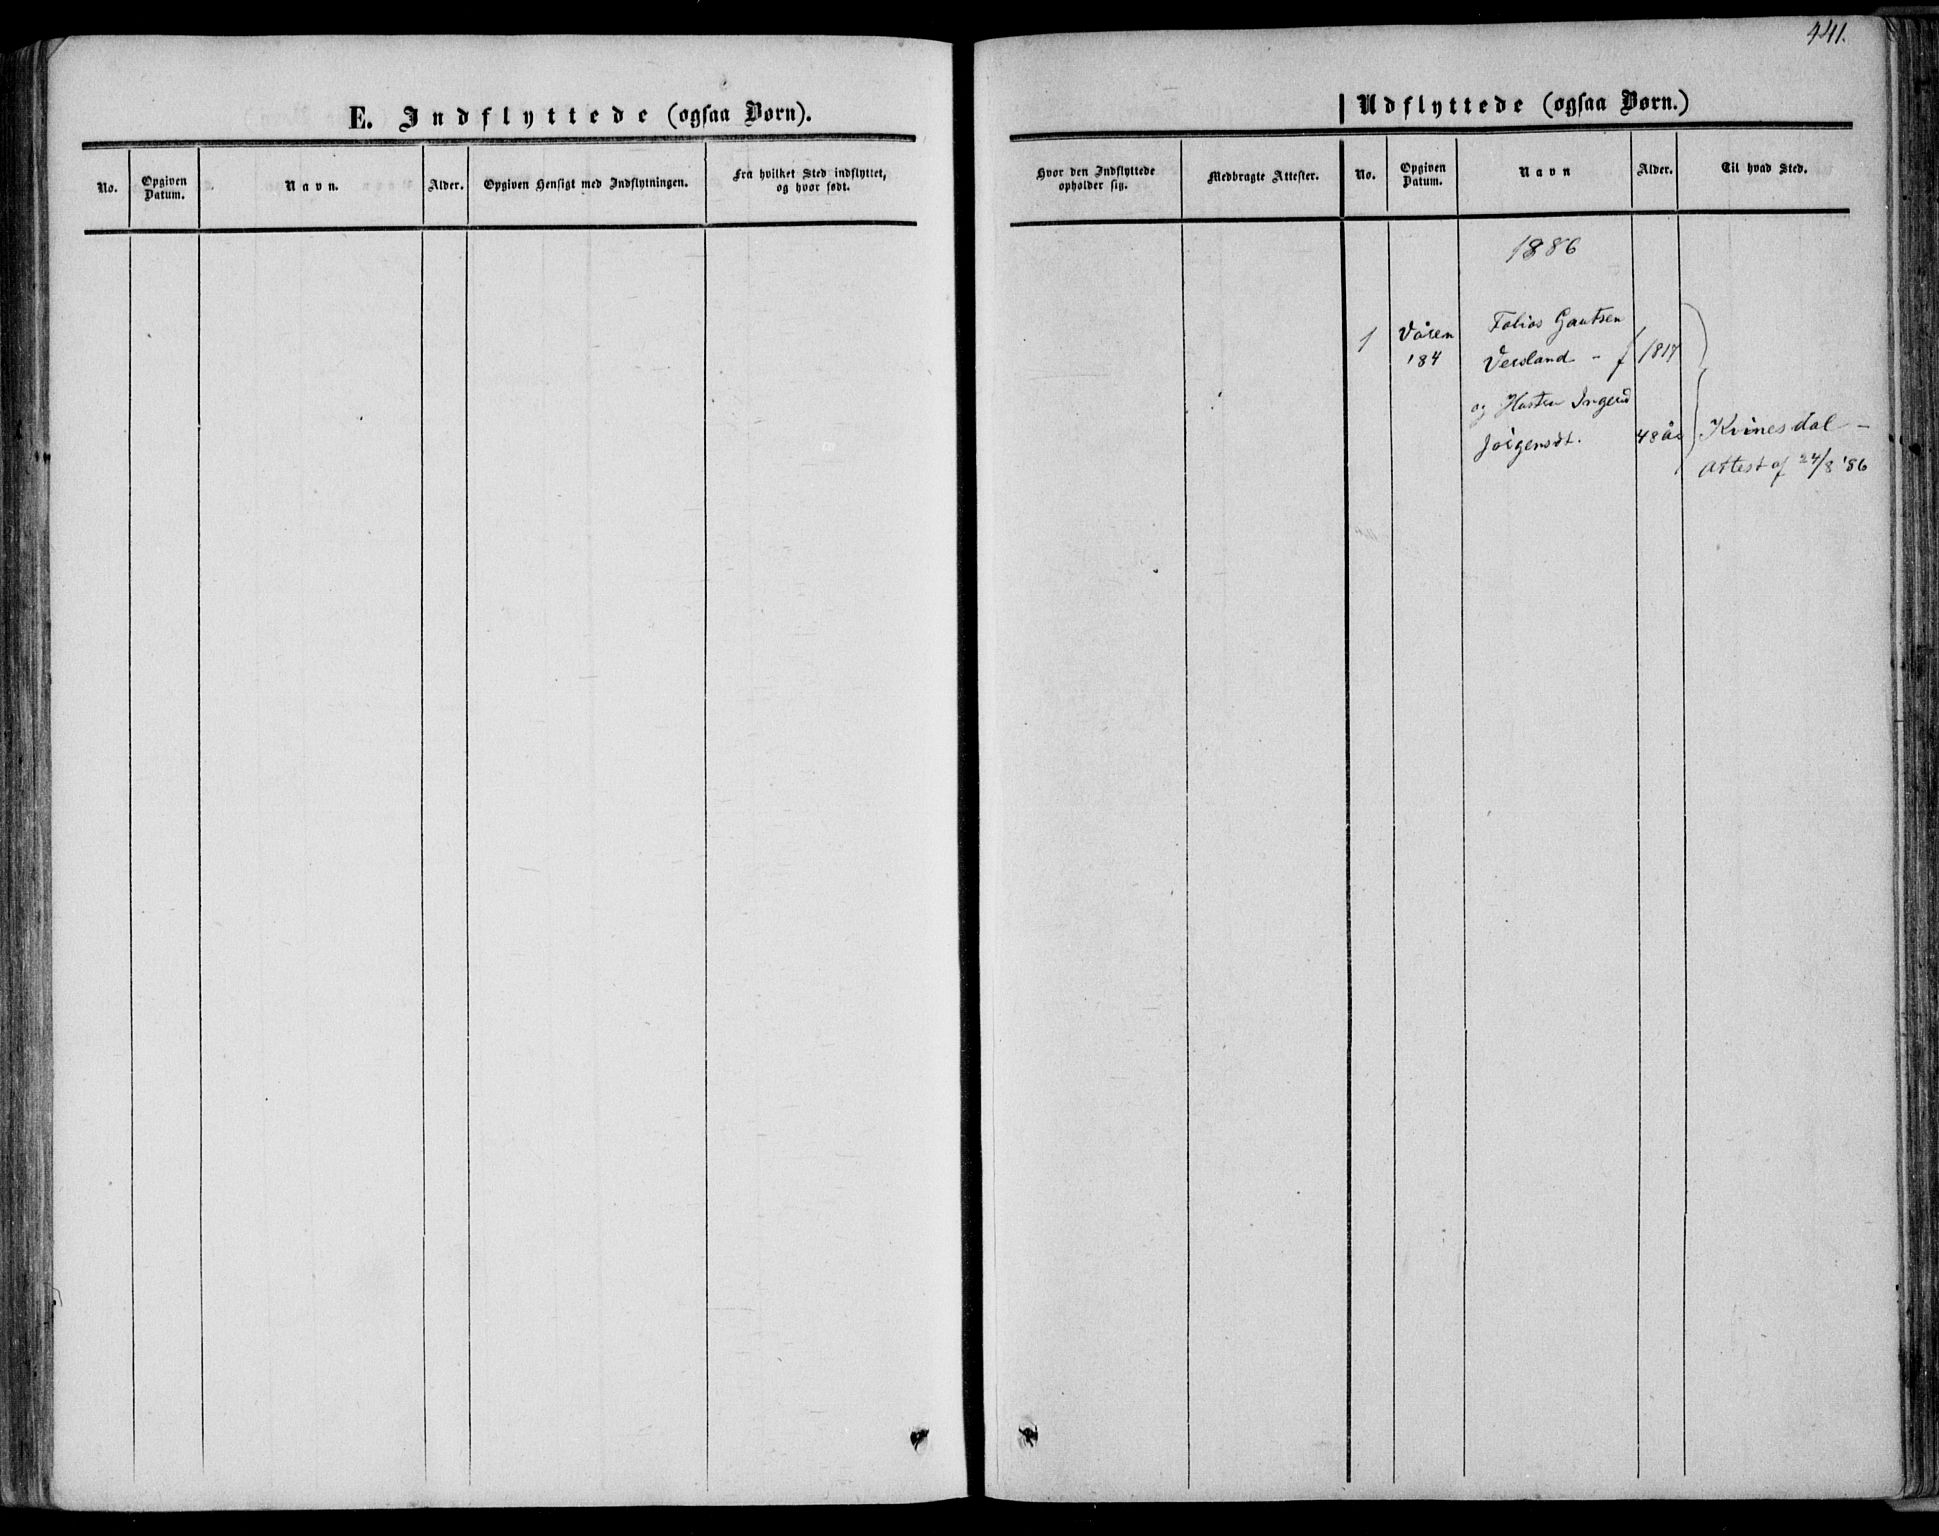 441.
E. Indflyttede (ogsaa Børn).
No.
Opgiven Datum.
Navn.
Alder.
Opgiven Hensigt med Indflytningen.
Fra hvilket Sted indflyttet, og hvor født.
Udflyttede (ogsaa Børn.)
Hvor den Indflyttede opholder sig.
Medbragte Attester.
No.
Opgiven Datum.
Navn
Alder.
Til hvad Sted.
1886
1
Våren
'84
Tobias Gautsen
Versland - f 1817
og Hustru Ingerid
Jørgensdt. 48 År
Kvinesdal -
Attest af 24/8 '86